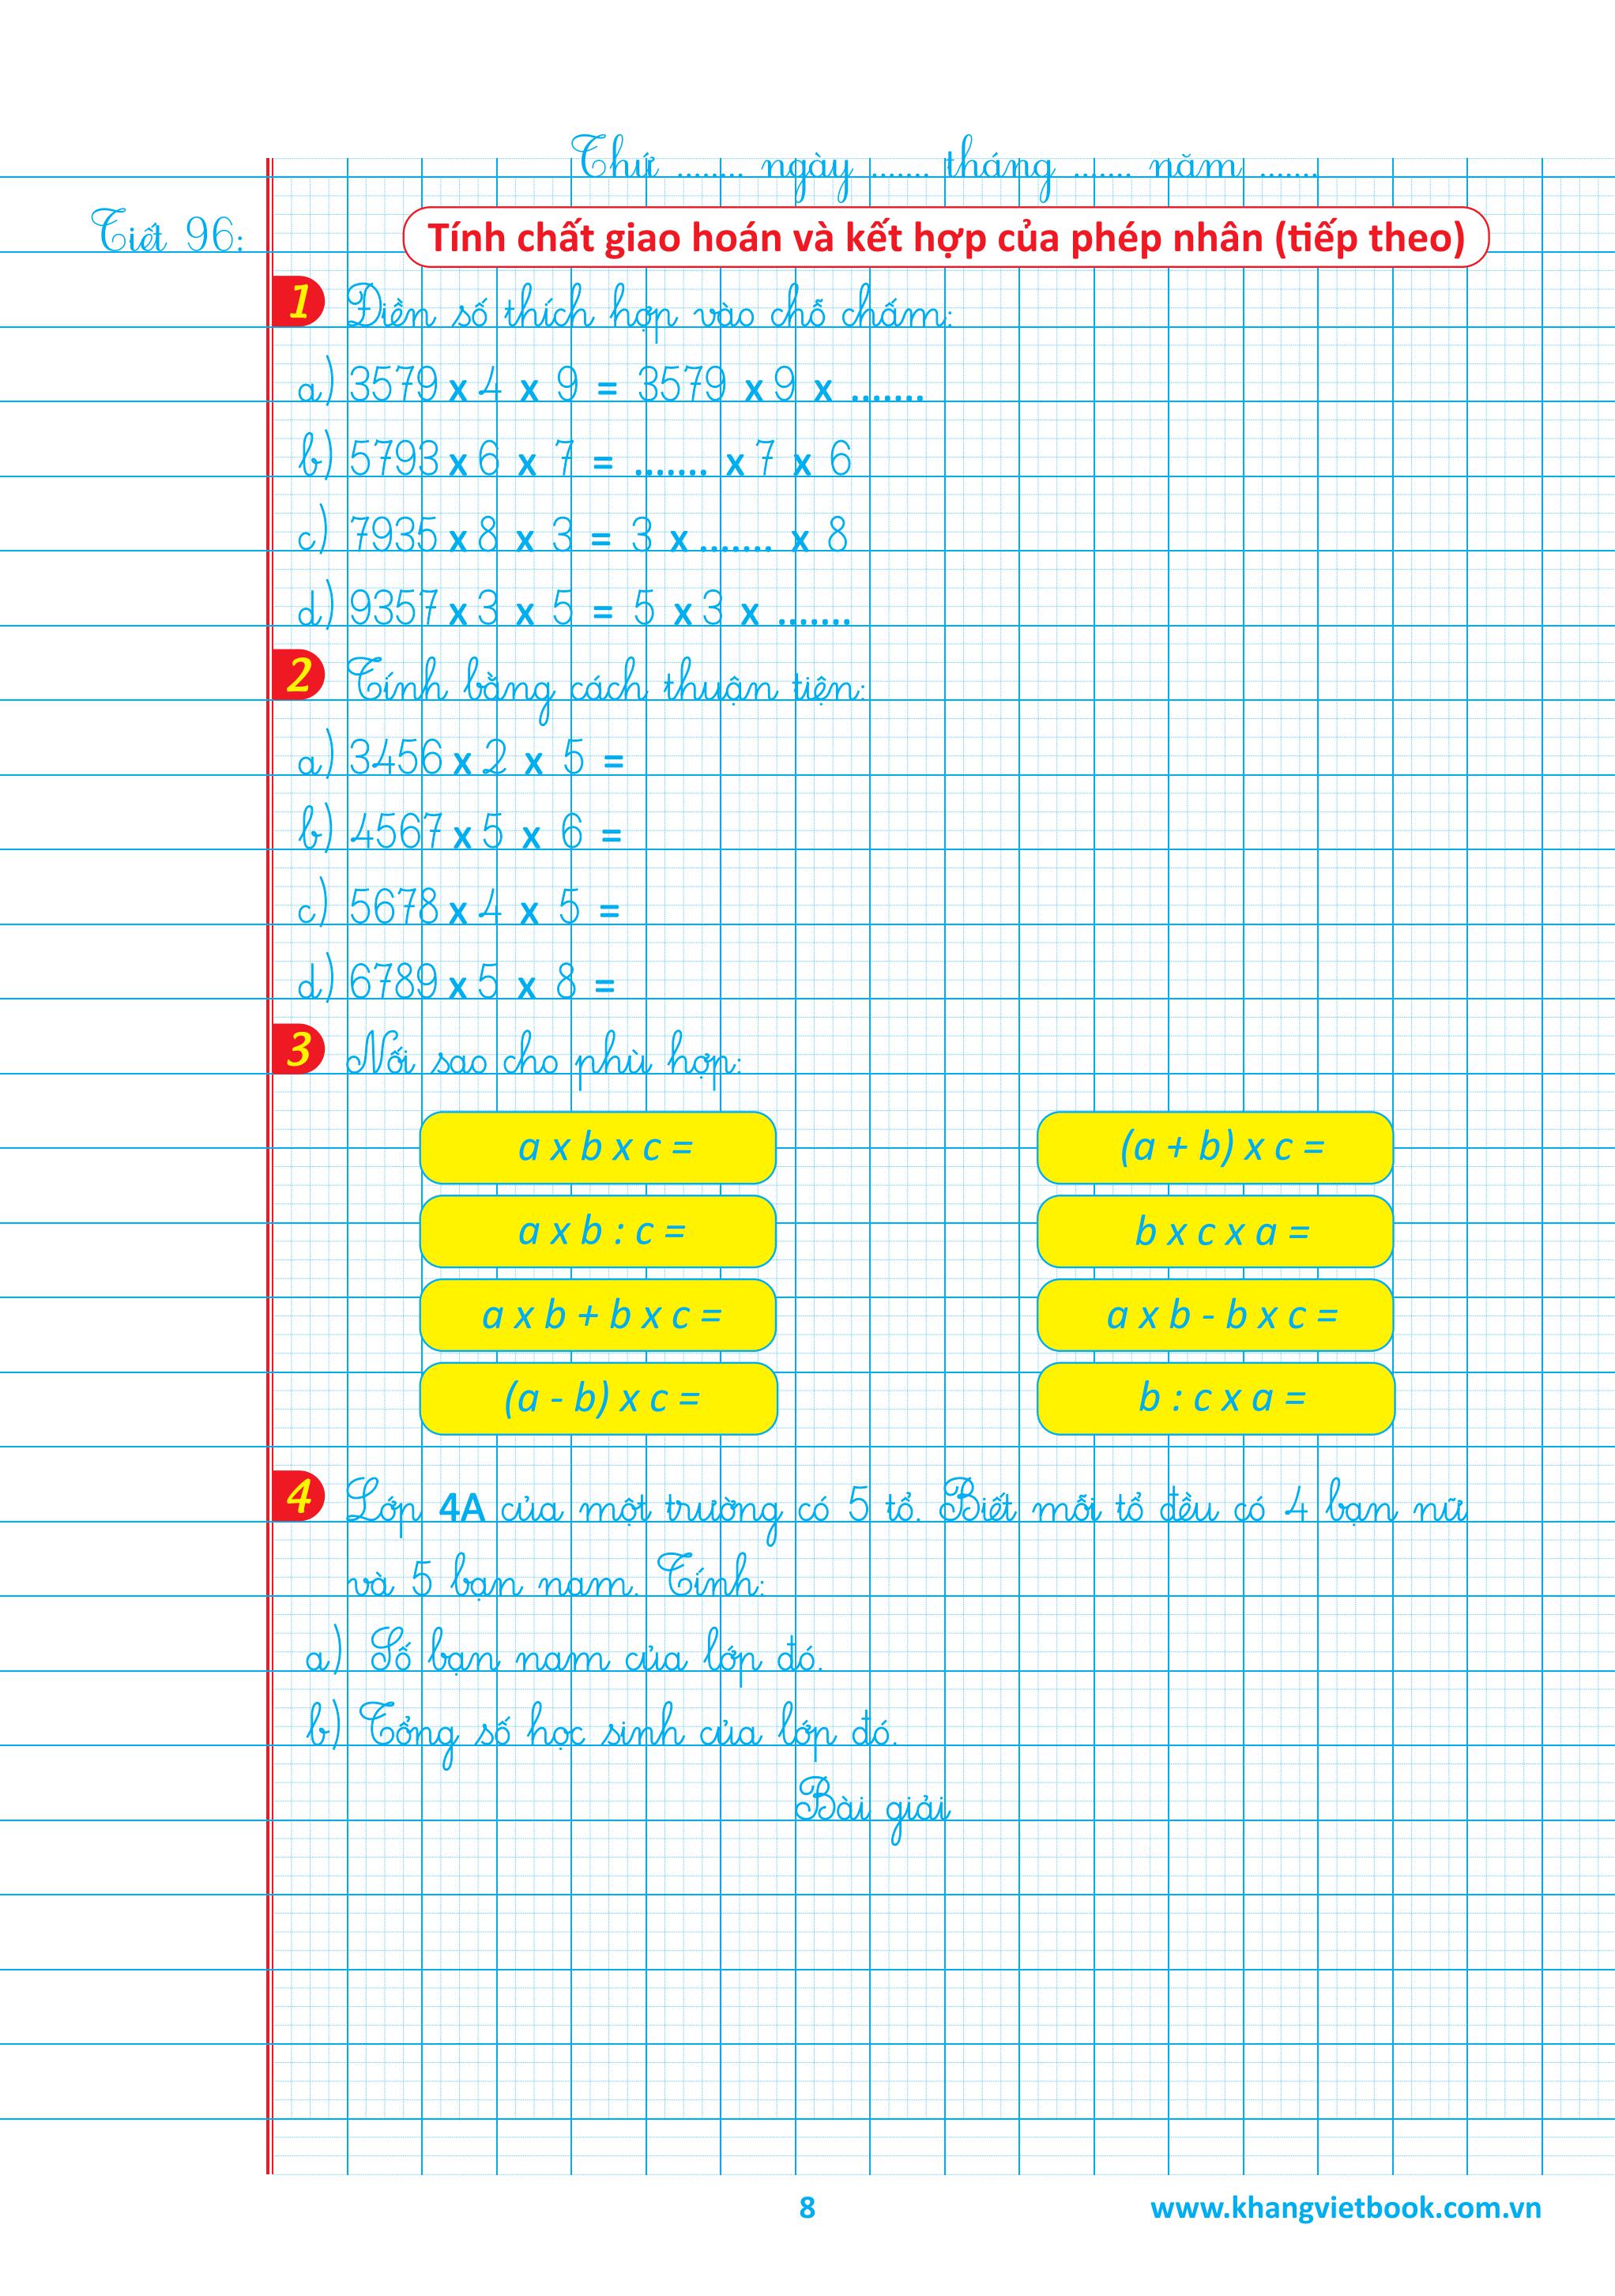 Thứ ........ ngày ....... tháng ....... năm .......
Tiết 96:
Tính chất giao hoán và kết hợp của phép nhân (tiếp theo)
1 Điền số thích hợp vào chỗ chấm:
a) 3579 x 4 x 9 = 3579 x 9 x .......
b) 5793 x 6 x 7 = ....... x 7 x 6
c) 7935 x 8 x 3 = 3 x ....... x 8
d) 9357 x 3 x 5 = 5 x 3 x .......
2 Tính bằng cách thuận tiện:
a) 3456 x 2 x 5 =
b) 4567 x 5 x 6 =
c) 5678 x 4 x 5 =
d) 6789 x 5 x 8 =
3 Nối sao cho phù hợp:
a x b x c = (a + b) x c =
a x b : c = b x c x a =
a x b + b x c = a x b - b x c =
(a - b) x c = b : c x a =
4 Lớp 4A của một trường có 5 tổ. Biết mỗi tổ đều có 4 bạn nữ
và 5 bạn nam. Tính:
a) Số bạn nam của lớp đó.
b) Tổng số học sinh của lớp đó.
Bài giải
8 www.khangvietbook.com.vn